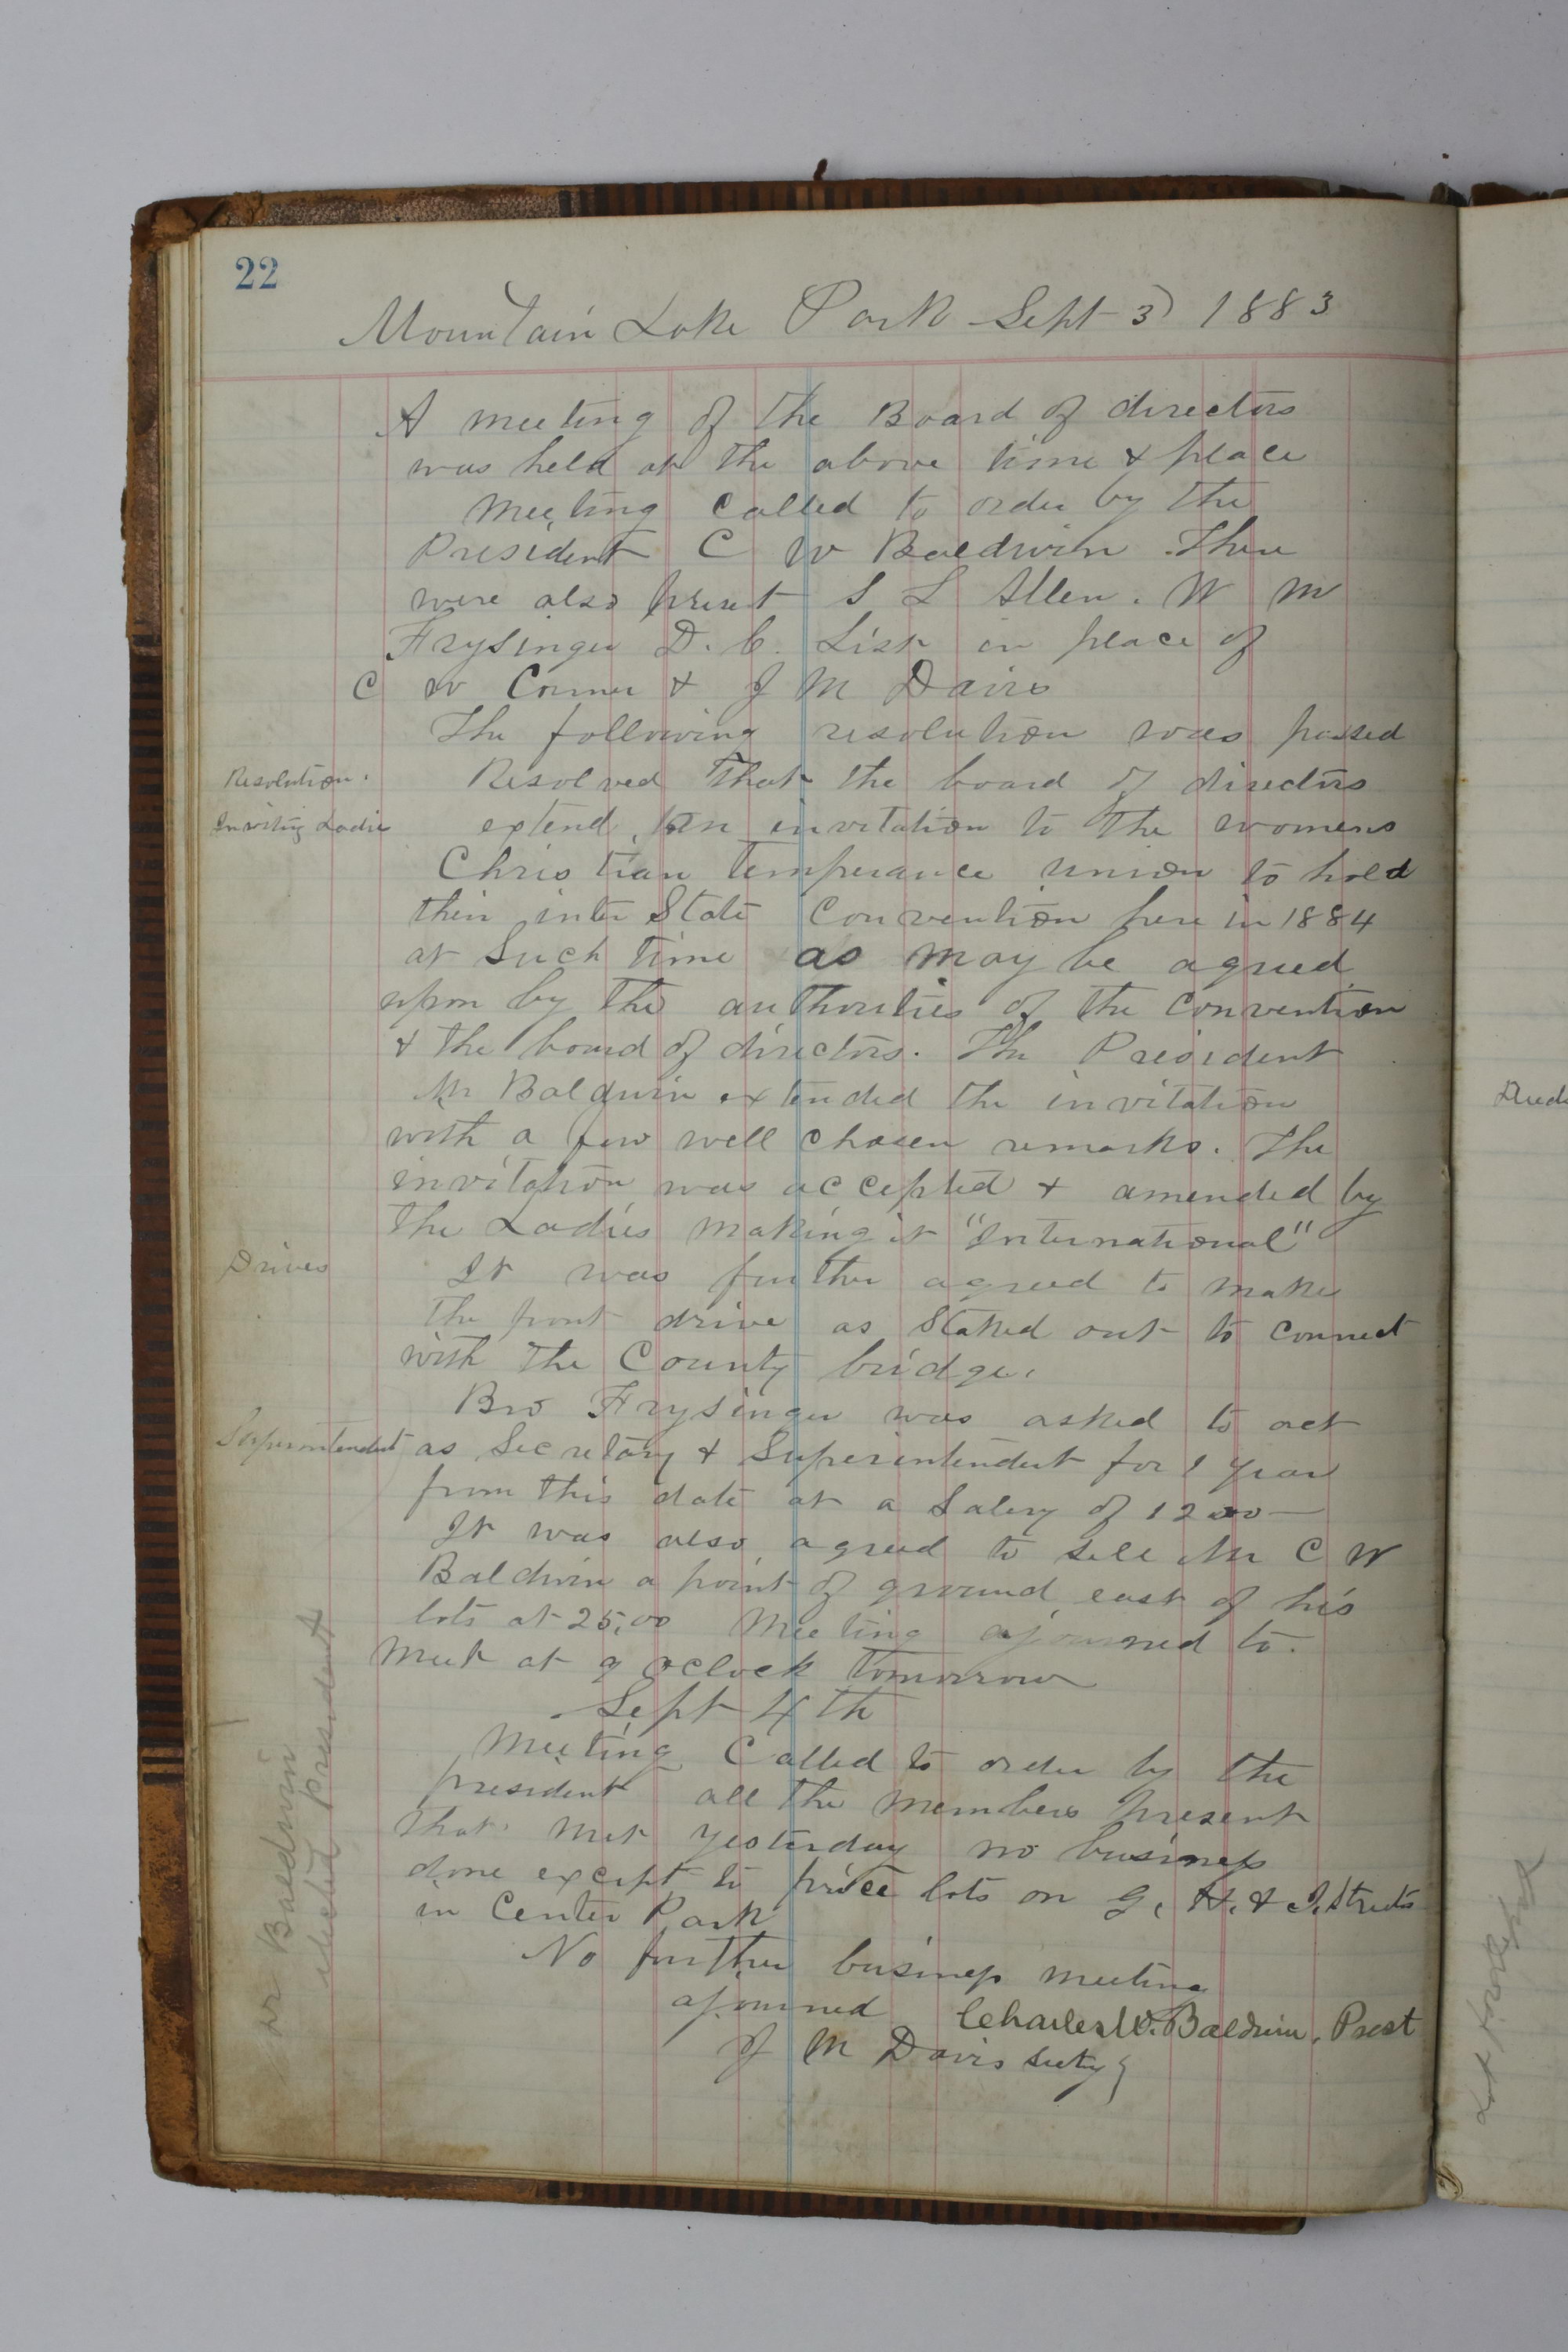 22
Mountain Lake Park Sept 3 1883
A meeting of the Board of directors
was held at the above time & place
Meeting Called to order by the
President C W Baldwin. There
were also present S L Allen. W M
Frysinger D. C. List in place of
C W Conner & J M Davis
The following resolution was passed
Resolution.
Resolved that the board of directors
Inviting Ladies
extend an invitation to the womens
Christian temperance union to hold
their inter State Convention here in 1884
at Such time as may be agreed
upon by the authorities of the Convention
& the board of directors. The President
Mr Baldwin extended the invitation
with a few well chosen remarks. The
invitation was accepted & amended by
the Ladies making it "International"
Drives
It was further agreed to make
the front drive as Staked out to connect
with the County bridge.
Bro Frysinger was asked to act
Superintendent
as Secretary & Superintendent for 1 year
from this date at a Salery of 1200—
It was also agreed to sell Mr C W
Baldwin a point of ground east of his
lots at 25.00 Meeting ajourned to
Meet at 9 oclock tomorrow
Sept 4th
Meeting Called to order by the
president all the members present
that met yesterday no business
done except to price lots on G. H. & I. Streets
in Center Park
No further business meeting
ajourned
Charles W. Baldwin. Prest
J M Davis secty
Baldwin
elected President